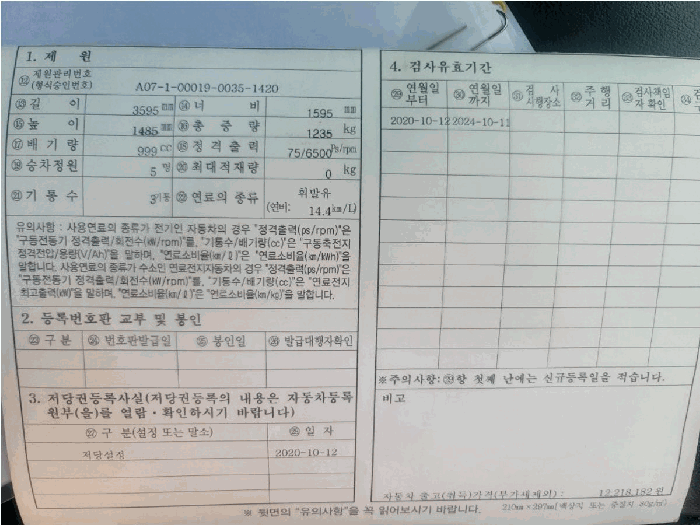 1. 제 원
⑬ 제원관리번호
(형식승인번호)
A07-1-00019-0035-1420
⑭길 이 3595mm ⑭너 비 1595 mm
⑮높 이 1485mm ⑯총 중 량 1235 kg
⑰배 기 량 999 cc ⑱정 격 출 력 75/6500Ps/rpm
⑲승차정원 5 명 ⑳최대적재량 0 kg
㉑기 통 수 3기통 ㉒연료의 종류 휘발유
(연비: 14.4km/L)
유의사항 : 사용연료의 종류가 전기인 자동차의 경우 "정격출력(ps/rpm)"은
"구동전동기 정격출력/회전수(kW/rpm)"를, "기통수/배기량(cc)"은 "구동축전지
정격전압/용량(V/Ah)"을 말하며, "연료소비율(㎞/ℓ)"은 "연료소비율(㎞/kWh)"을
말합니다. 사용연료의 종류가 수소인 연료전지자동차의 경우 "정격출력(ps/rpm)"은
"구동전동기 정격출력/회전수(kW/rpm)"를, "기통수/배기량(cc)"은 "연료전지
최고출력(kW)"을 말하며, "연료소비율(㎞/ℓ)"은 "연료소비율(㎞/kg)"을 말합니다.
2. 등록번호판 교부 및 봉인
㉓구 분 ㉔ 번호판발급일 ㉕ 봉인일 ㉖ 발급대행자확인
3. 저당권등록사실(저당권등록의 내용은 자동차등록
원부(을)를 열람ㆍ확인하시기 바랍니다)
㉗ 구 분(설정 또는 말소) ㉘ 일 자
저당설정 2020-10-12
4. 검사유효기간
㉙ 연월일
부터
㉚ 연월일
까지
㉛ 검 사
시행장소
㉜ 주 행
거 리
㉝검사책임
자 확인
2020-10-12 2024-10-11
※주의사항: ㉙항 첫째 난에는 신규등록일을 적습니다.
비고
자동차 출고(취득)가격(부가세제외) : 12,218,182 원
210㎜×297㎜(백상지 또는 중질지 80g/㎡)
※ 뒷면의 "유의사항"을 꼭 읽어보시기 바랍니다.